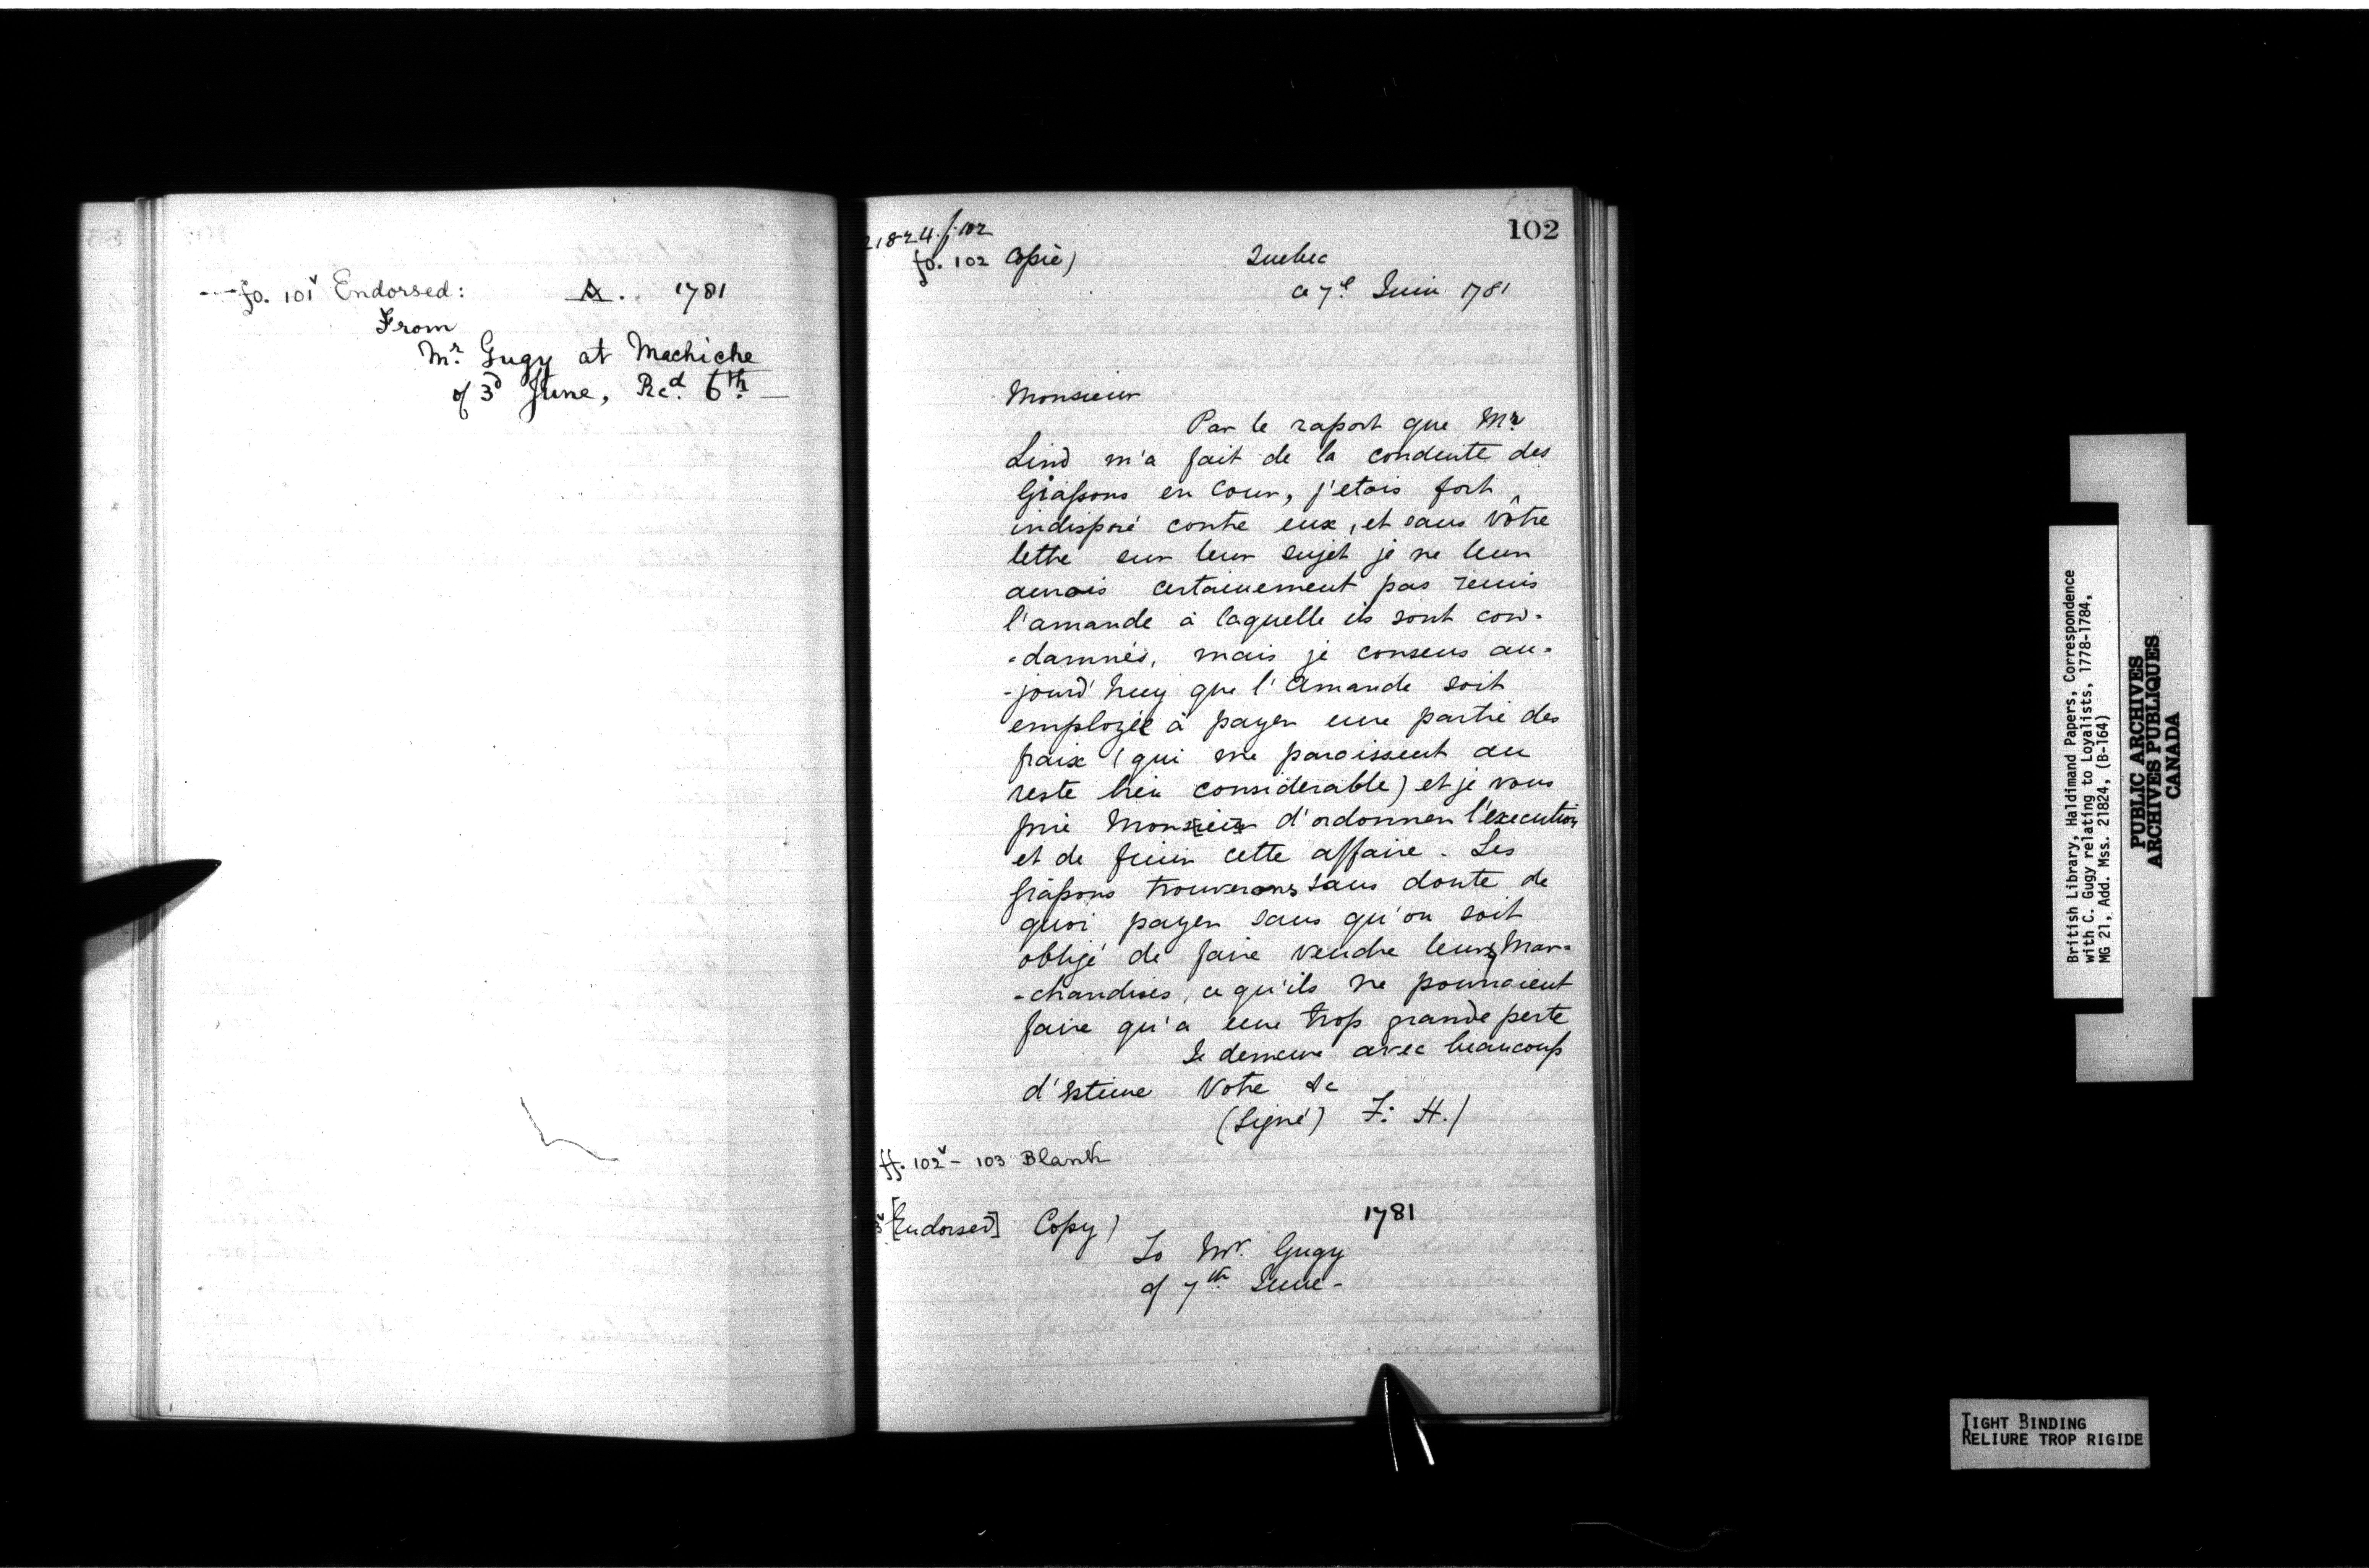 fo. 101v Endorsed: A. 1781
From
Mr. Gugy at Machiche
of 3d June, Recd. 6th. —
102
21824. f. 102
fo. 102 Copié) Quebec
ce 7e Juin 1781
Monsieur
Par le raport que Mr
Lind m'a fait de la conduite des
Grassons en Cour, j'etois fort
indisposé contre eux, et sans Vôtre
lettre sur leur sujet je ne leur
aurois certainement pas remis
l'amande à laquelle ils sont con-
-damnés, mais je consens au-
-jourd'huy que l'Amande soit
emploiée à payer une partie des
fraix (qui me paroissent au
reste bien considerable) et je vous
prie Monsieur d'ordonner l'execution
et de finir cette affaire. Les
Grassons trouverons sans doute de
quoi payer sans qu'on soit
obligé de faire vendre leurs Mar-
-chandises, ce qu'ils ne pourroient
faire qu'a une trop grande perte
Je demeure avec beaucoup
d'Estime Votre &c
(Signé) F: H./
ff. 102v - 103 Blank
3v [Endorsed] Copy) 1781
To Mr. Gugy
of 7th June -
British Library, Haldimand Papers, Correspondence
with C. Gugy relating to Loyalists, 1778-1784,
MG 21, Add. Mss. 21824, (B-164)
PUBLIC ARCHIVES
ARCHIVES PUBLIQUES
CANADA
TIGHT BINDING
RELIURE TROP RIGIDE